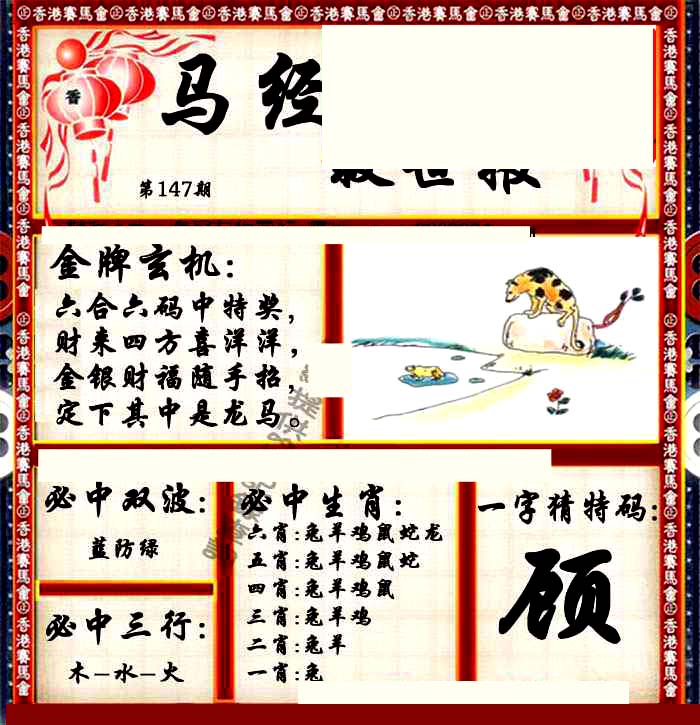 香港賽馬會 香港賽馬會 香港賽馬會 香港賽馬會 香港賽馬會 香港賽馬會
香
马经
救世报
第147期
金牌玄机:
六合六码中特奖,
财来四方喜洋洋,
金银财福随手招,
定下其中是龙马。
必中双波:
蓝防绿
必中三行:
木-水-火
必中生肖:
六肖:兔羊鸡鼠蛇龙
五肖:兔羊鸡鼠蛇
四肖:兔羊鸡鼠
三肖:兔羊鸡
二肖:兔羊
一肖:兔
一字猜特码:
顾